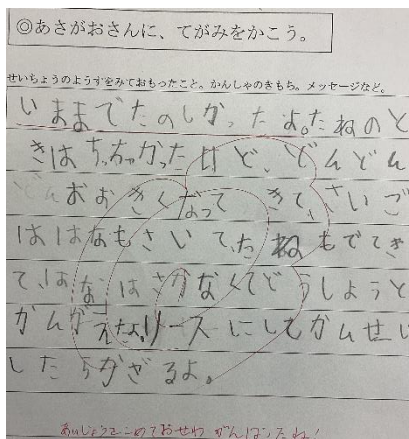 ◎あさがおさんに、てがみをかこう。
せいちょうのようすをみておもったこと。かんしゃのきもち。メッセージなど。
いままでたのしかったよ。たねのと
きはちっちゃかったけど、どんどん
おおきくなってきて、さいご
ははなもさいて、たねもでてき
て、はなはさかなくてどうしようと
かんがえたよ。リースにしてかんせい
したらかざるよ。
あいじょうこめておせわがんばったね!